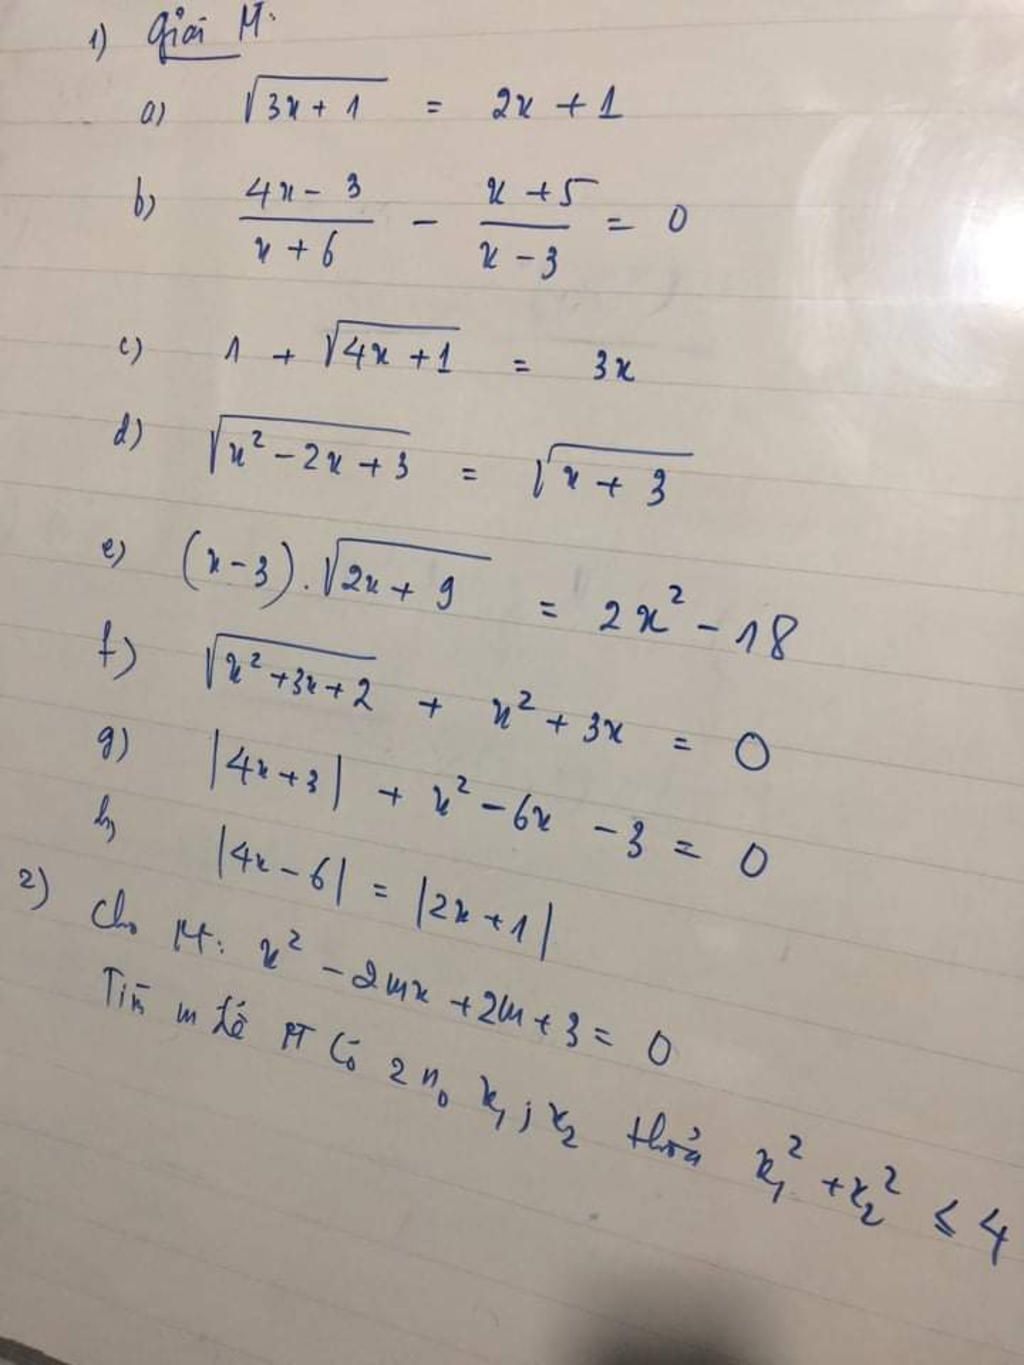 1) Giải PT:
a) √(3x + 1) = 2x + 1
b) (4x - 3)/(x + 6) - (x + 5)/(x - 3) = 0
c) 1 + √(4x + 1) = 3x
d) √(x² - 2x + 3) = √(x + 3)
e) (x - 3) . √(2x + 9) = 2x² - 18
f) √(x² + 3x + 2) + x² + 3x = 0
g) |4x + 3| + x² - 6x - 3 = 0
h) |4x - 6| = |2x + 1|
2) Cho PT: x² - 2mx + 2m + 3 = 0
Tìm m để PT có 2 n₀ x₁ ; x₂ thỏa x₁² + x₂² ≤ 4